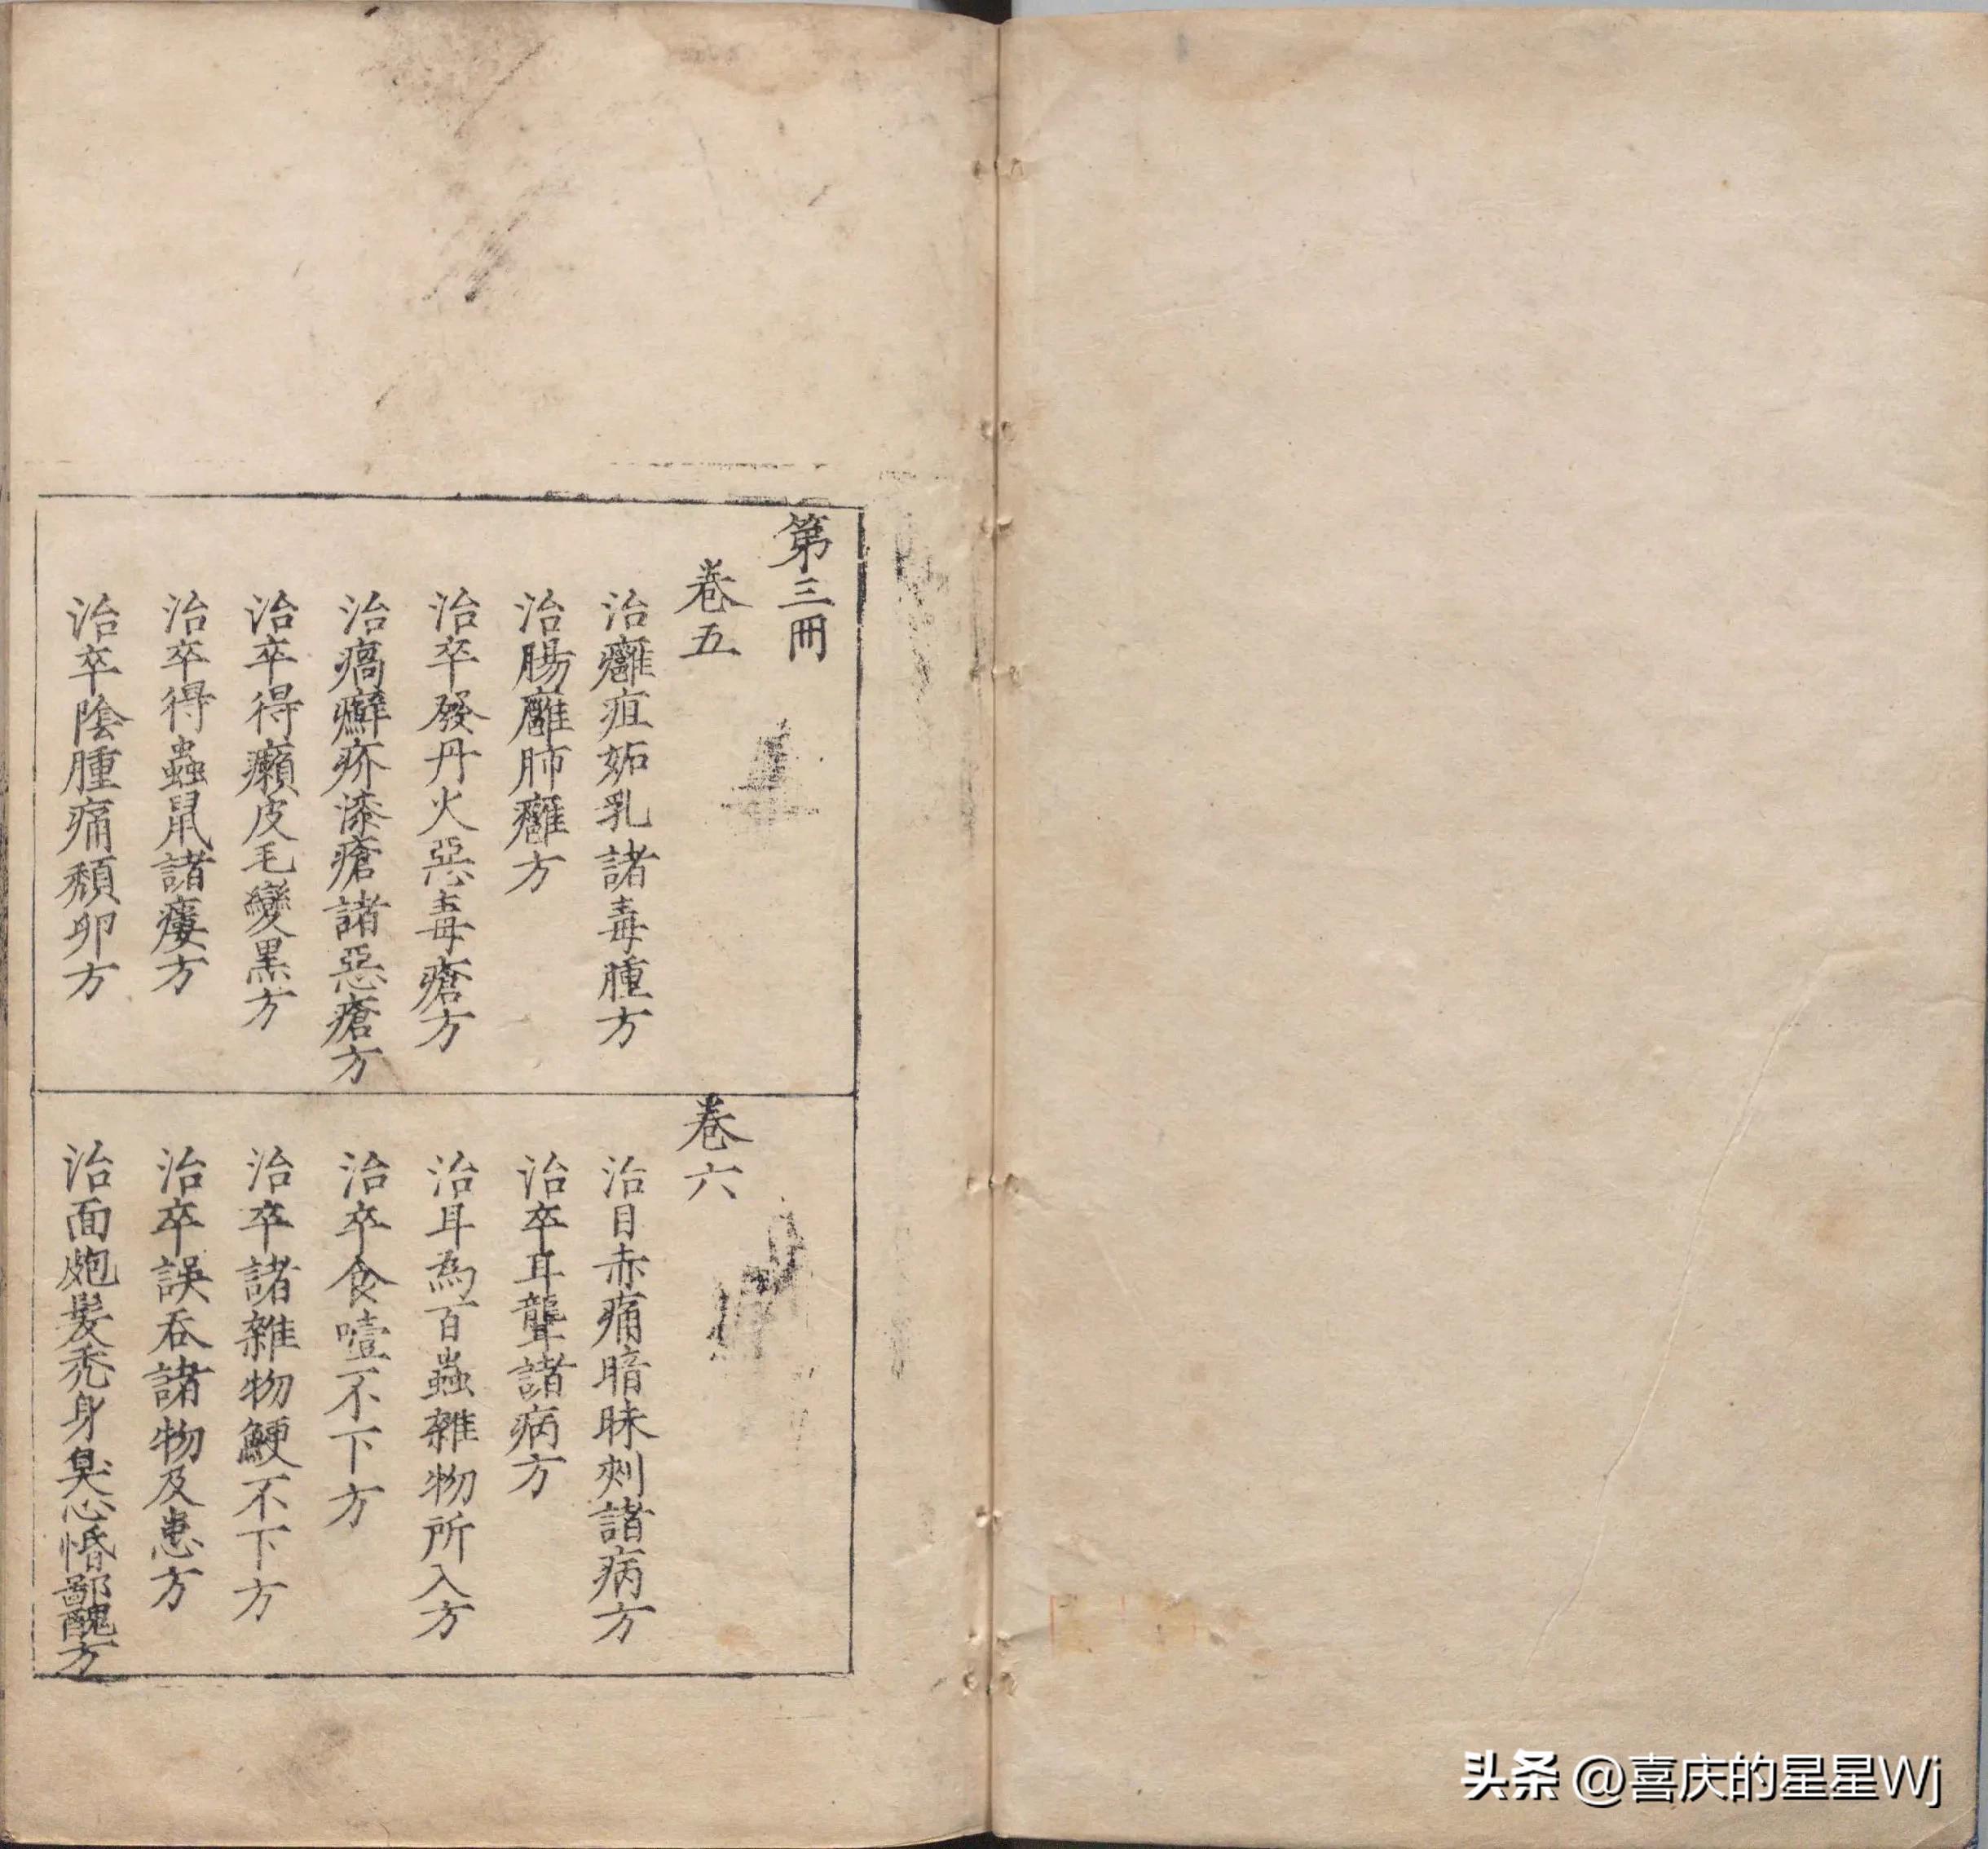 第三冊
卷五
治癰疽妬乳諸毒腫方
治腸癰肺癰方
治卒發丹火惡毒瘡方
治瘑癬疥漆瘡諸惡瘡方
治卒得癩皮毛變黑方
治卒得蟲鼠諸瘻方
治卒陰腫痛頹卵方
卷六
治目赤痛暗昧刺諸病方
治卒耳聾諸病方
治耳為百蟲雜物所入方
治卒食噎不下方
治卒諸雜物鯁不下方
治卒誤吞諸物及患方
治面皰髮禿身臭心惛鄙醜方
头条 @喜庆的星星Wj